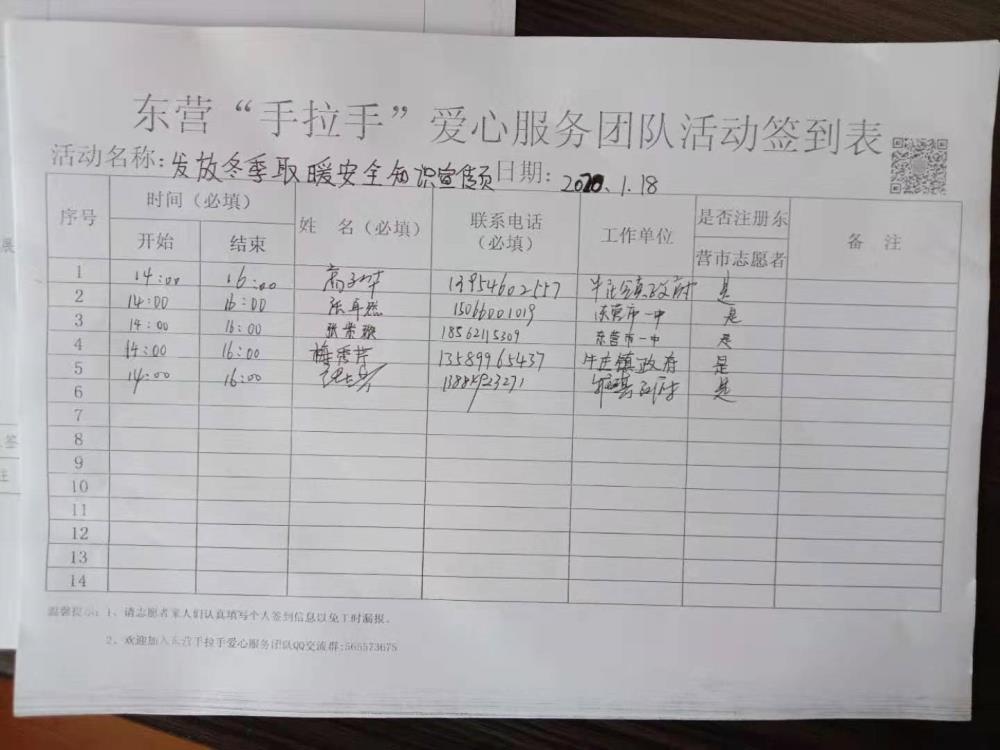 东营“手拉手”爱心服务团队活动签到表
活动名称:发放冬季取暖安全知识宣传页 日期: 2020.1.18
序号 时间（必填） 姓 名（必填） 联系电话（必填） 工作单位 是否注册东营市志愿者 备 注
开始 结束
1 14:00 16:00 高子华 13954602557 牛庄镇政府 是
2 14:00 16:00 张卓然 15066001019 东营市一中 是
3 14:00 16:00 张 15862115309 东营市一中 是
4 14:00 16:00 梅秀芹 13589965437 牛庄镇政府 是
5 14:00 16:00 牛庄镇政府 是
6
7
8
9
10
11
12
13
14
温馨提示: 1、请志愿者家人们认真填写个人签到信息以免工时漏报。
2、欢迎加入东营手拉手爱心服务团队QQ交流群:565573675